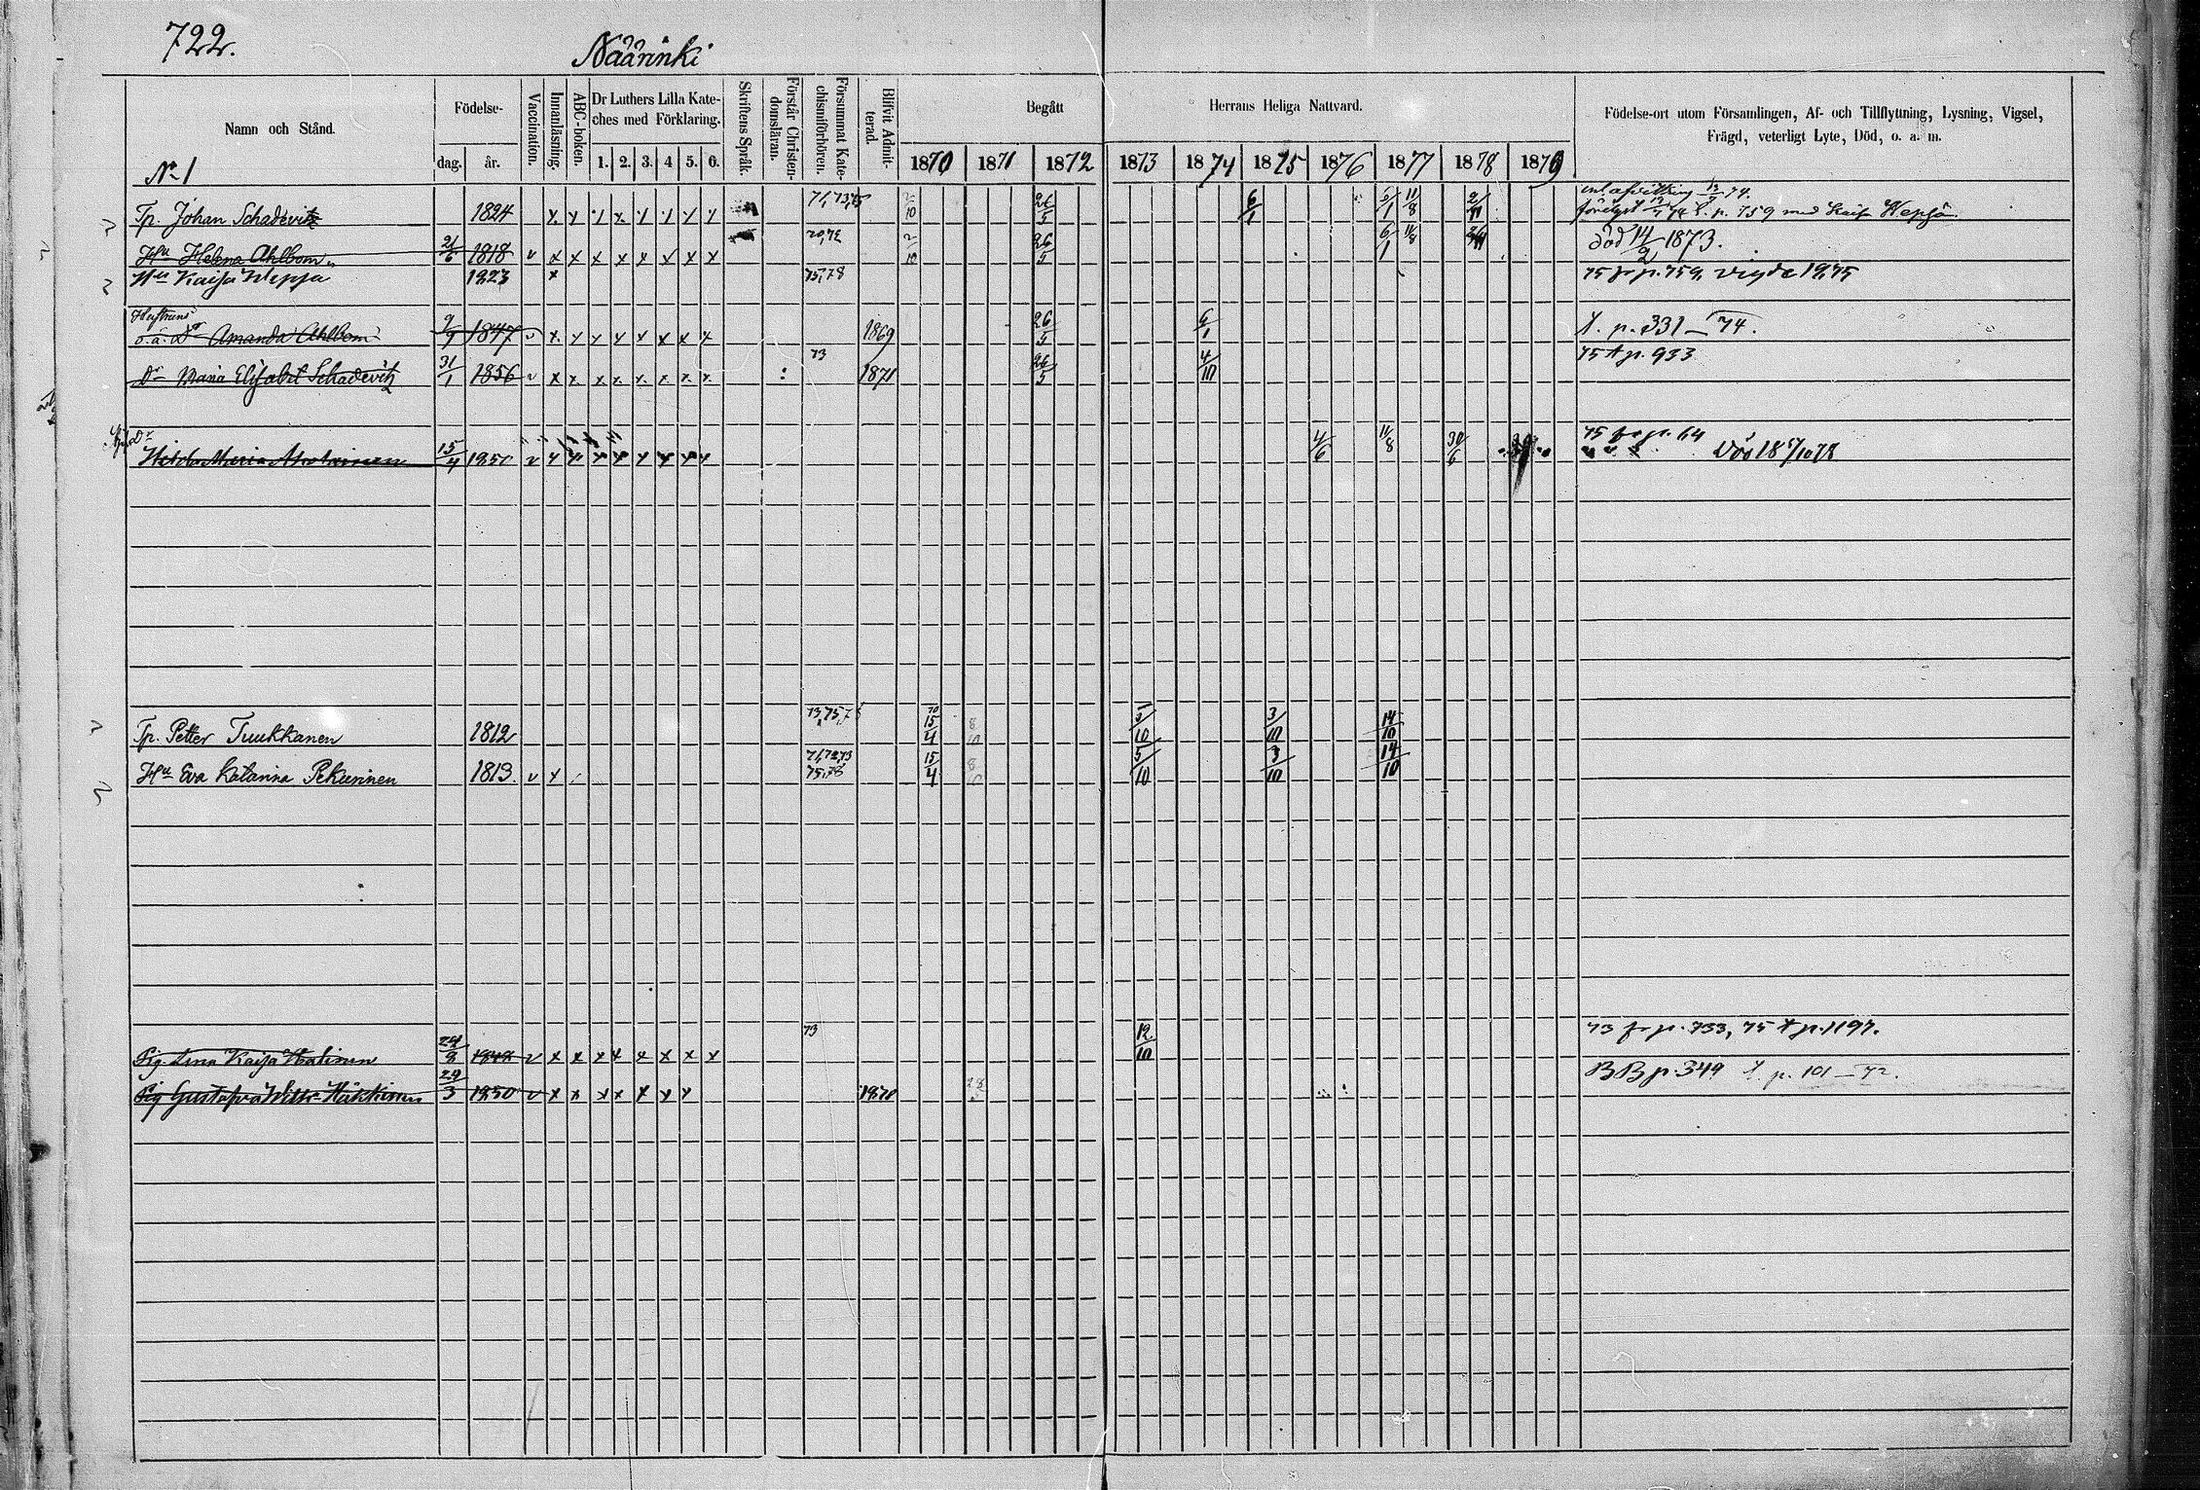 722.
Näärinki
Namn och Stånd.
Födelse-
dag.
år.
Vaccination.
Innanläsning.
ABC-boken.
Dr Luthers Lilla Kate-
ches med Förklaring.
1. 2. 3. 4 5. 6.
Skriftens Språk.
Förstår Christen-
domsläran.
Försummat Kate-
chismiförhören.
Blifvit Admit-
terad.
Begått
Herrans Heliga Nattvard.
1870 1871 1872 1873 1874 1875 1876 1877 1878 1879
Födelse-ort utom Församlingen, Af- och Tillflyttning, Lysning, Vigsel,
Frägd, veterligt Lyte, Död, o. a. m.
No 1
Tp. Johan Schadevitz 1824 2/10 26/5 6/1 6/1 11/8
p. 759 med Kaisa
Hu Helena Ahlbom 21/6 1818 v x x x x x x x x 2/10 26/5 6/1 11/8 död 14/2 1873.
Hu Kaisa 1823 x 75,78 75 fr p. 759, vigde 1875
o.ä. Dr Amanda Ahlbom 9/9 1847 v x x x x x x x x 1869 26/5 6/1 p. 331 — 74.
Dr Maria Elisabet Schadevitz 31/1 1856 v x x x x x x x x 73 1871 26/5 4/10 75 t p. 933
Dr
Hilda Maria 15/4 v x x x x x x x x 4/6 11/8 30/6 75 fr p. 64
Tp. Petter Tuukkanen 1812 15/4 8/10 5/10 3/10 14/10
71,72,73
Hu Eva Katarina Pekurinen 1813. v x 75,78 15/4 8/10 5/10 3/10 14/10
Pig Lina Kaisa 24/8 v x x x x x x x x 73 12/10 73 fr p. 733, 75 t p. 1197.
Pig Gustafva Häkkinen 29/3 1850 v x x x x x x x 1870 BB p. 349 p. 101 — 72.